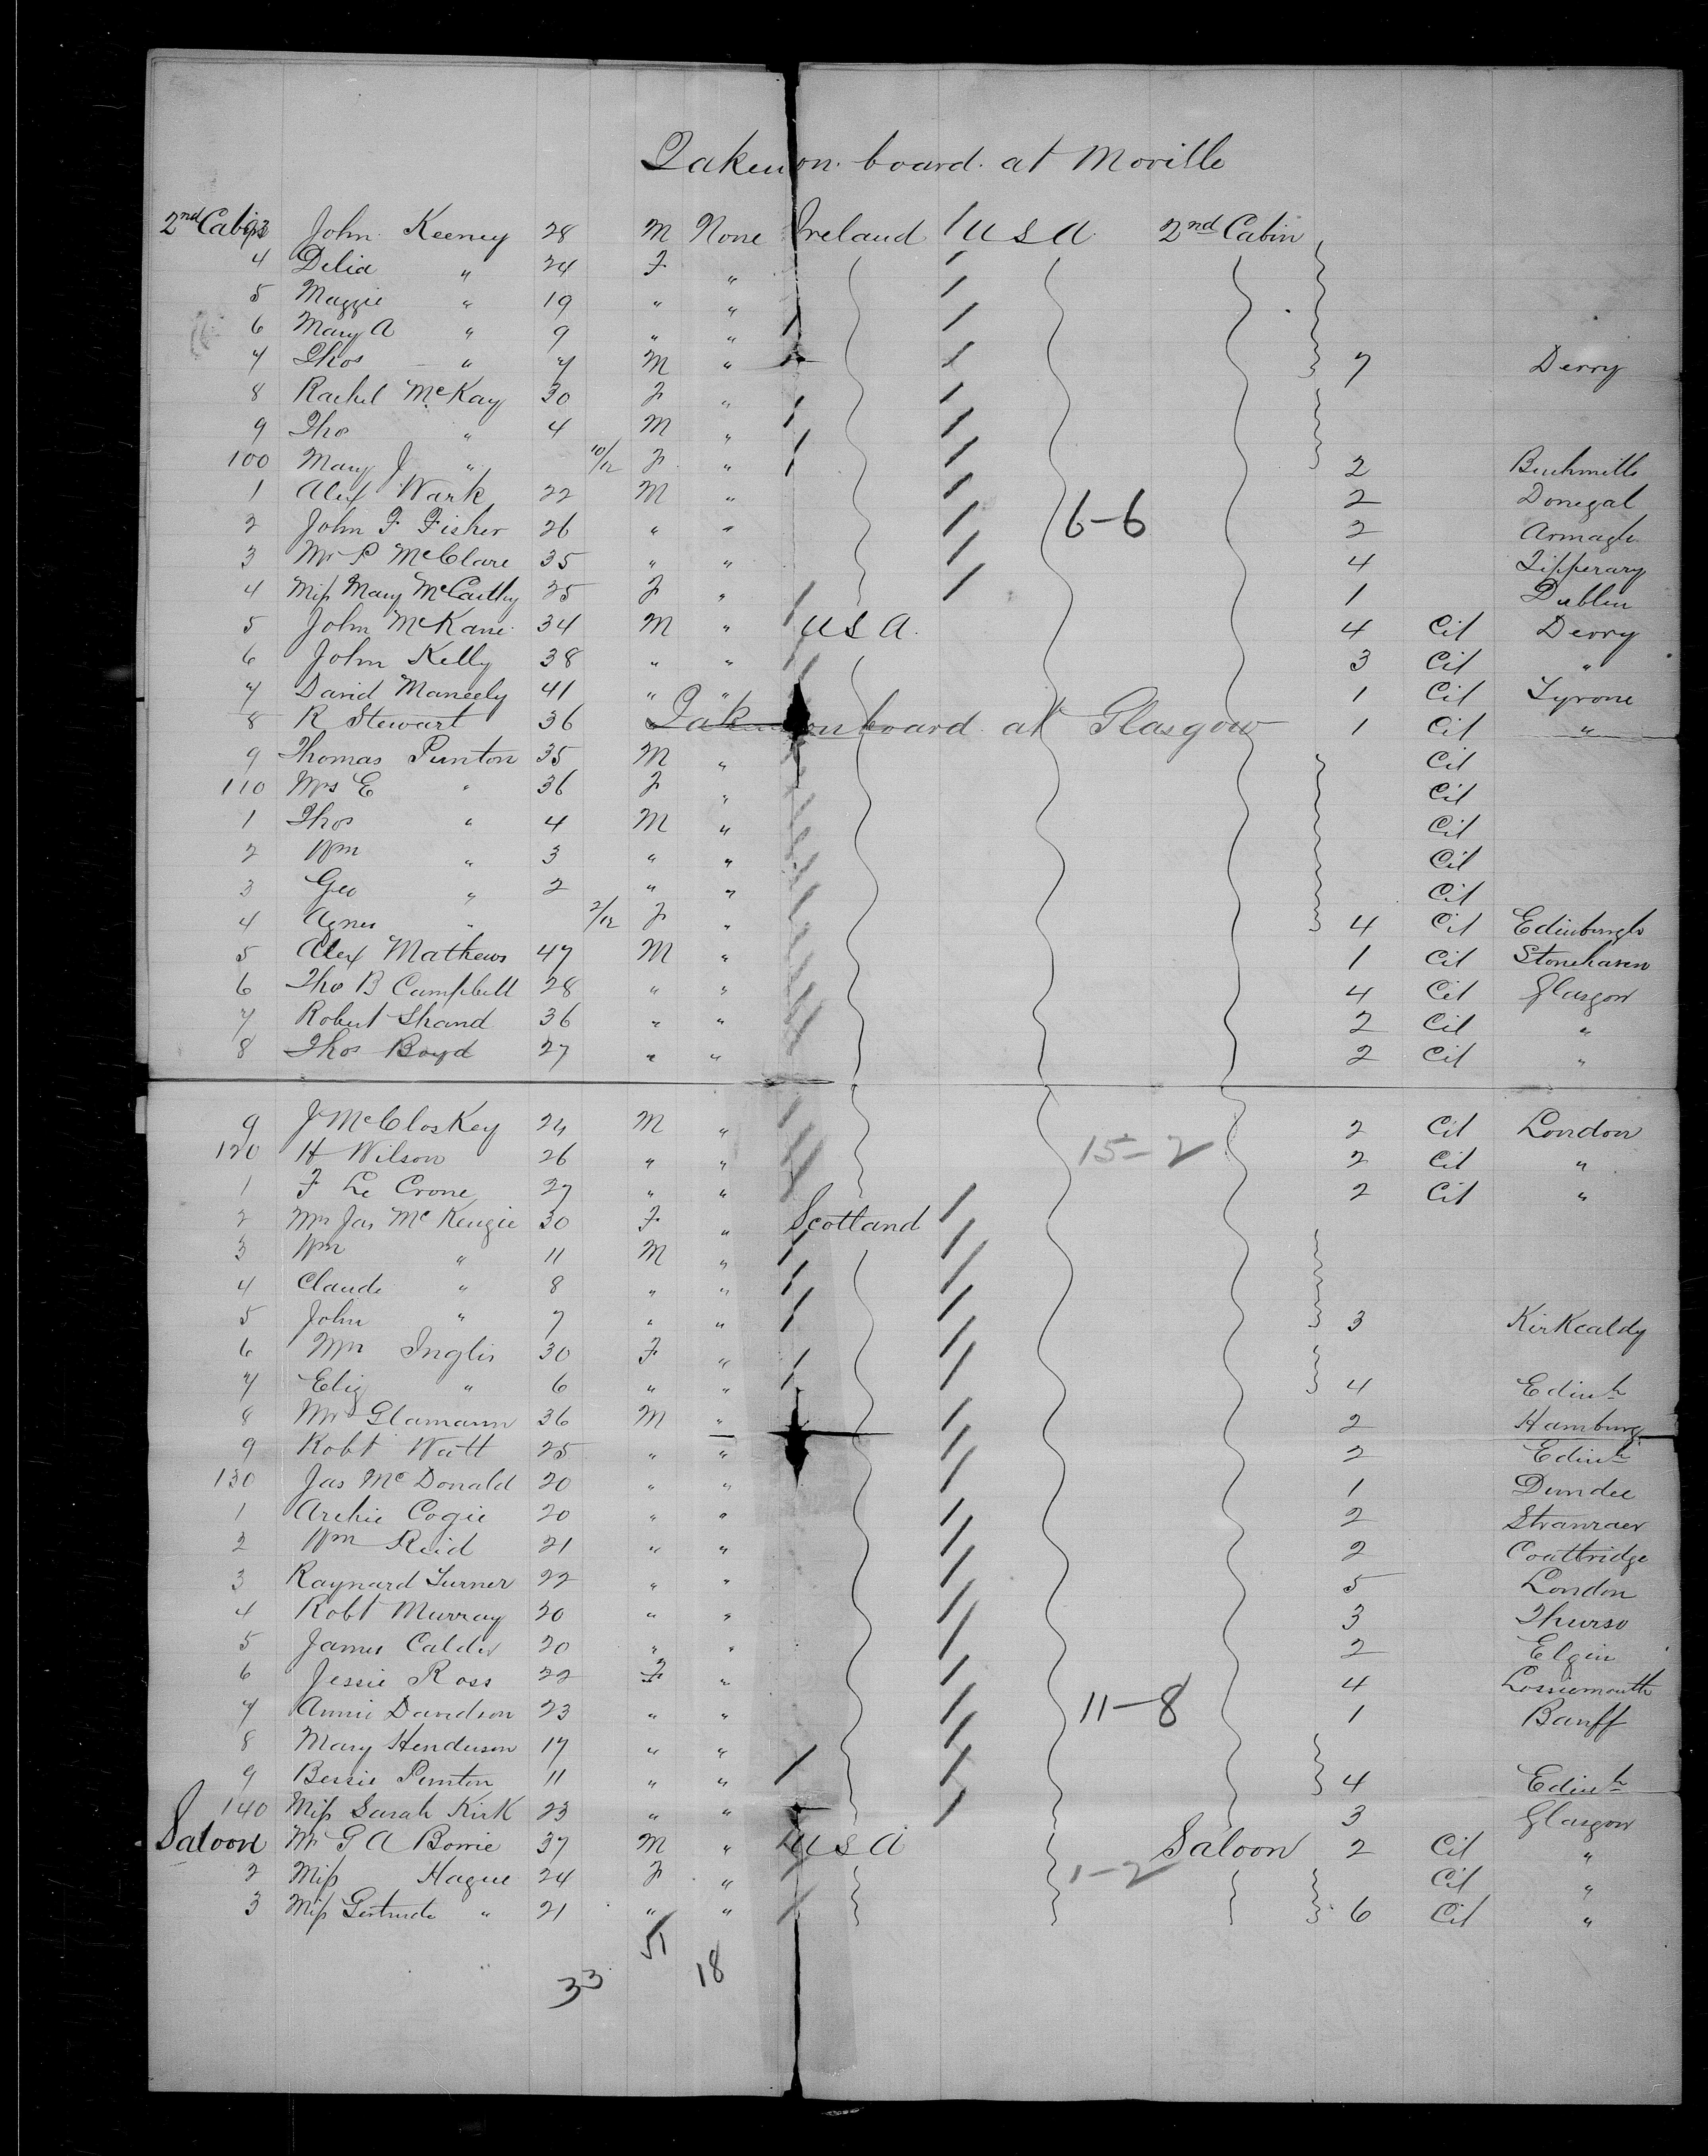 Taken on board at Moville
2nd Cabin 93 John Keeney 28 M None Ireland / U S A 2nd Cabin
4 Delia " 24 F "
5 Maggie " 19 " "
6 Mary A " 9 " "
7 Thos " 7 M " 7 Derry
8 Rachel McKay 30 F "
9 Thos " 4 M "
100 Mary J " 10/12 F " 2 Bushmills
1 Alex Wark 22 M " 2 Donegal
2 John F Fisher 26 " " 6-6 2 Armagh
3 Mr P McClare 35 " " 4 Tipperary
4 Miss Mary McCarthy 25 F " 1 Dublin
5 John McKane 34 M " U S A. 4 Cit Derry
6 John Kelly 38 " " 3 Cit "
7 David Maneely 41 " " 1 Cit Tyrone
8 R Stewart 36 Taken on board at Glasgow 1 Cit "
9 Thomas Punton 35 M " Cit
110 Mrs E " 36 F " Cit
1 Thos " 4 M " Cit
2 Wm " 3 " " Cit
3 Geo " 2 " " Cit
4 Agnes " 2/12 F " 4 Cit Edinburgh
5 Alex Mathews 47 M " 1 Cit Stonehaven
6 Thos B Campbell 28 " " 4 Cit Glasgow
7 Robert Shand 36 " " 2 Cit "
8 Thos Boyd 27 " " 2 Cit "
9 J McCloskey 24 M " 2 Cit London
120 H Wilson 26 " " 15-2 2 Cit "
1 F Le Crone 27 " " 2 Cit "
2 Mrs Jas McKenzie 30 F " Scotland
3 Wm " 11 M "
4 Claude " 8 " "
5 John " 7 " " 3 Kirkcaldy
6 Mrs Inglis 30 F "
7 Eliz " 6 " " 4 Edinh
8 Mr Glamann 36 M " 2 Hamburg
9 Robt Watt 25 " " 2 Edinh
130 Jas McDonald 20 " " 1 Dundee
1 Archie Cogie 20 " " 2 Stranraer
2 Wm Reid 21 " " 2 Coatbridge
3 Raynard Turner 22 " " 5 London
4 Robt Murray 20 " " 3 Thurso
5 James Calder 20 " " 2 Elgin
6 Jessie Ross 22 F " 4 Lossiemouth
7 Annie Davidson 23 " " 11-8 1 Banff
8 Mary Henderson 17 " "
9 Bessie Punton 11 " " 4 Edinh
140 Miss Sarah Kirk 23 " " 3 Glasgow
Saloon Mr G A Bowie 37 M " U S A Saloon 2 Cit "
2 Miss Hague 24 F " 1-2 Cit "
3 Miss Gertrude " 21 " " 6 Cit "
51
33 18